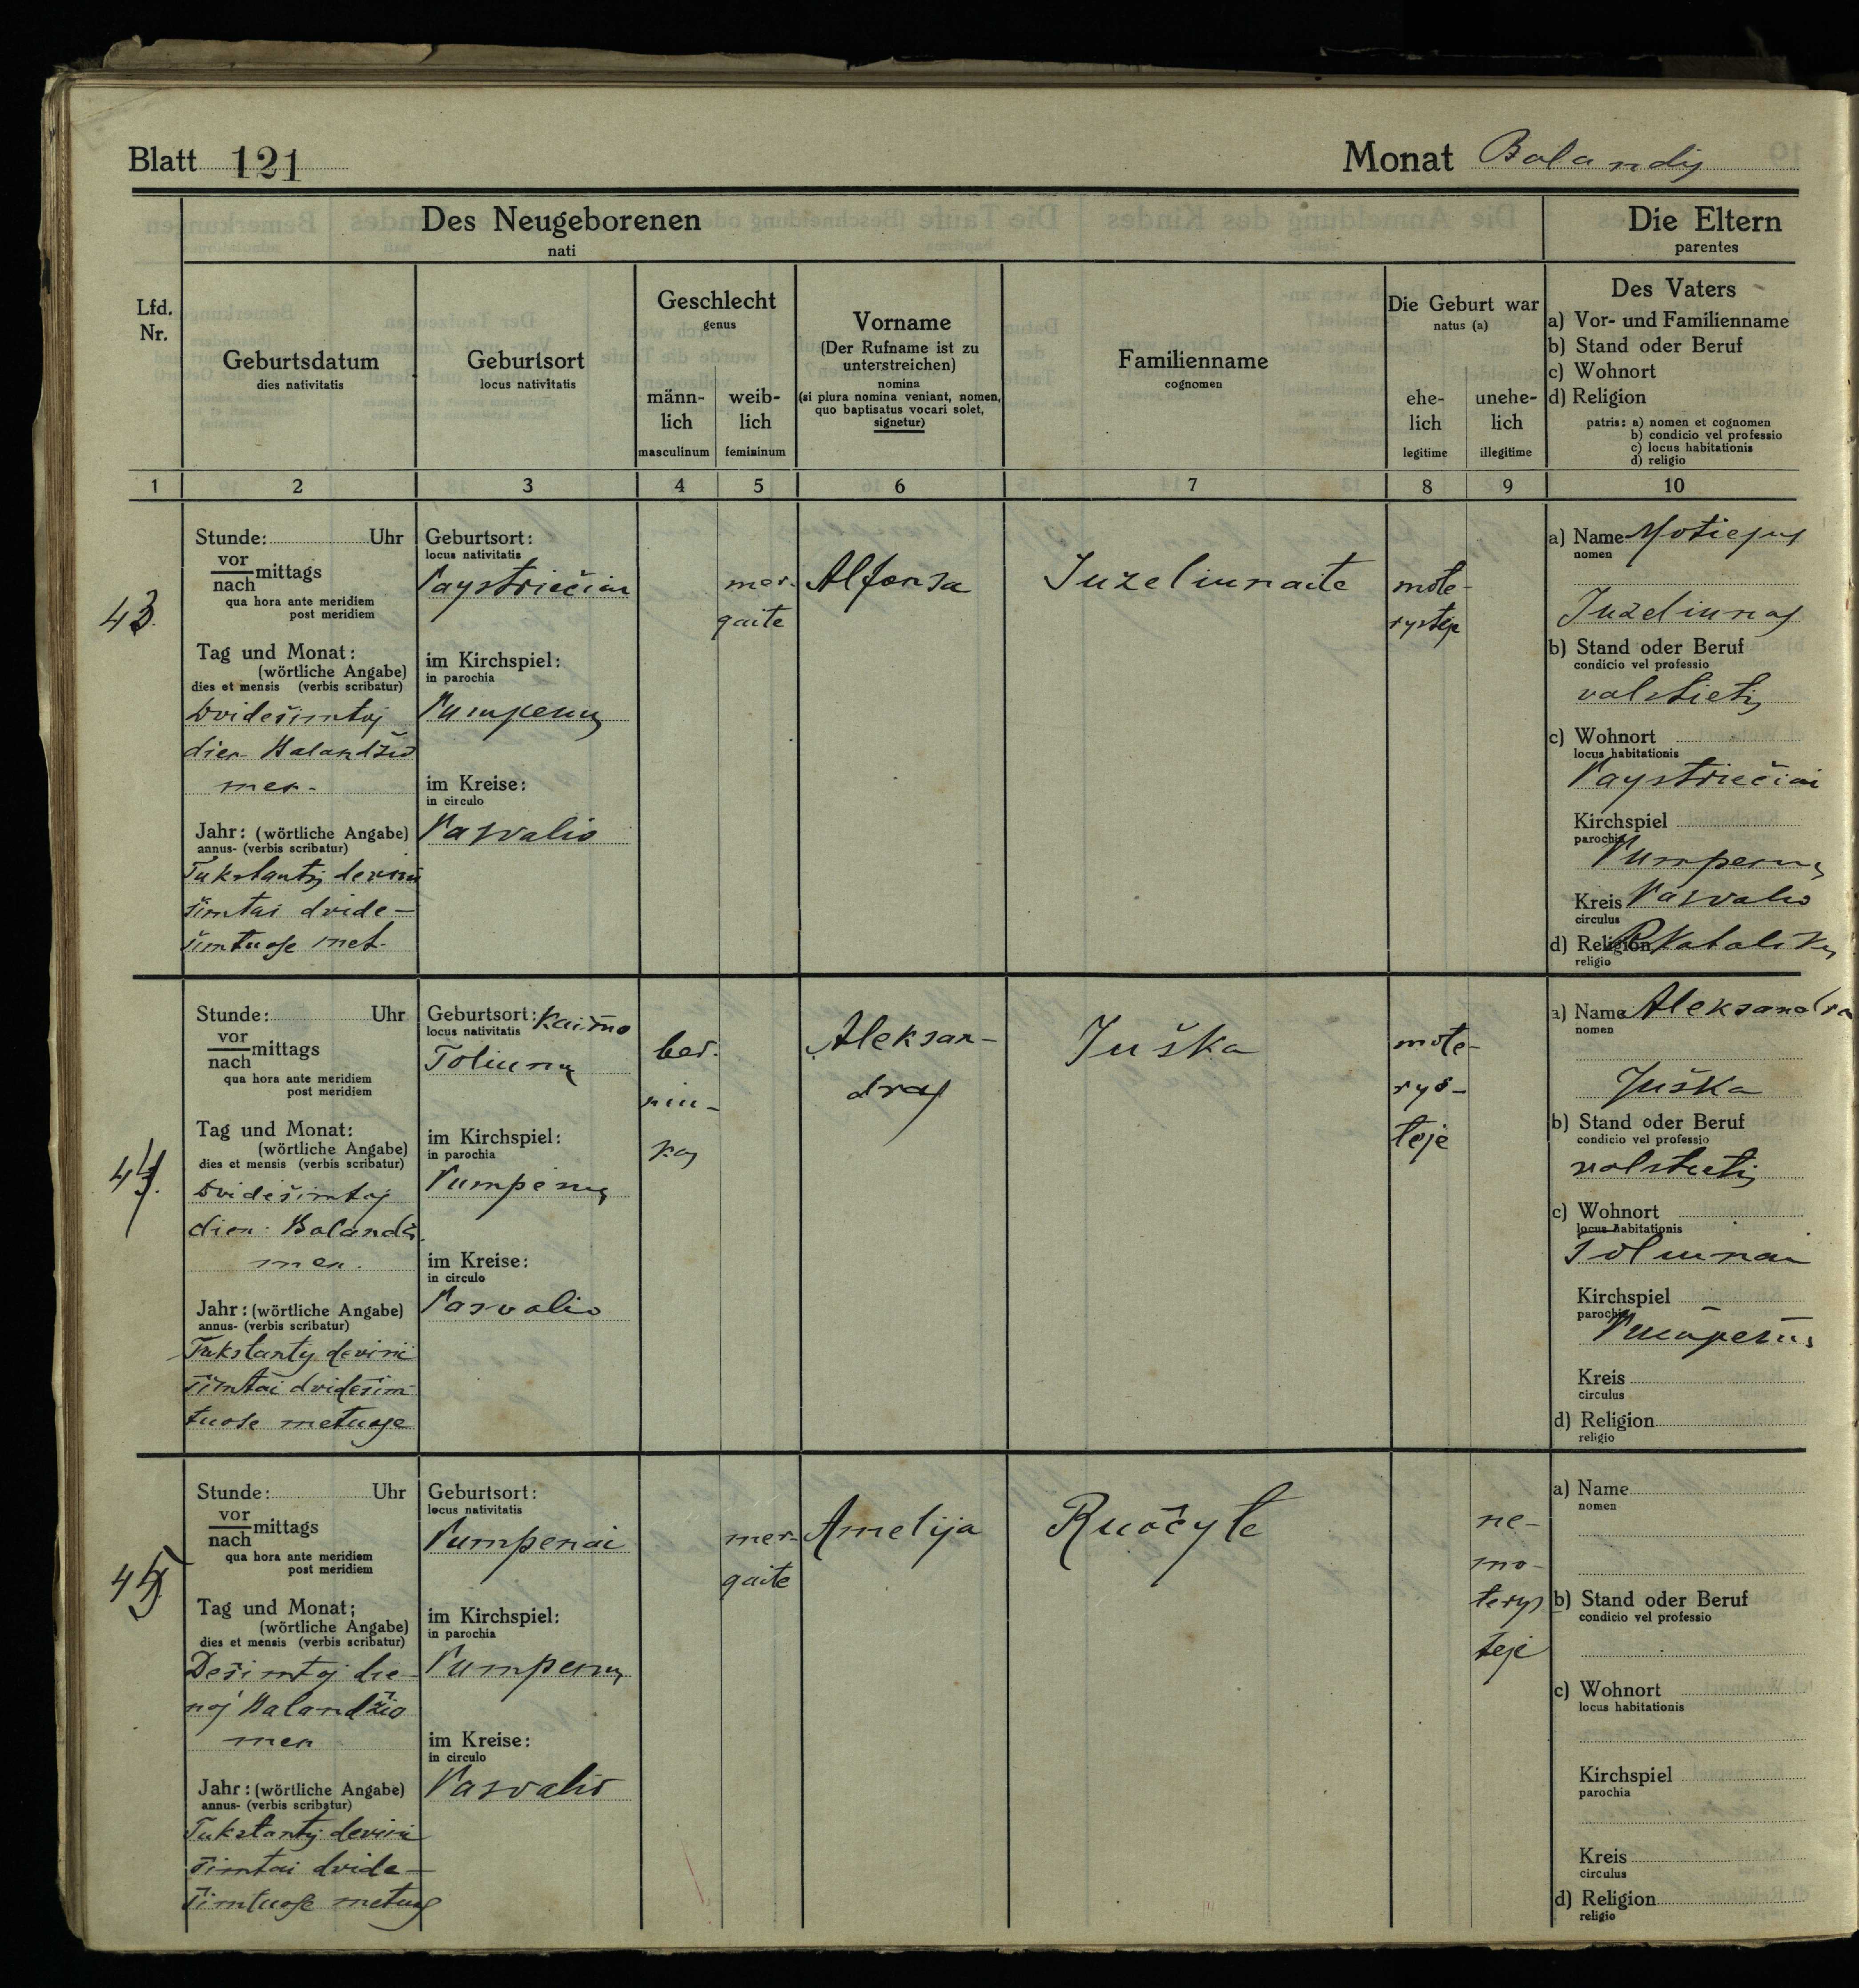 Blatt 121
Monat Balandis
Des Neugeborenen
nati
Die Eltern
parentes
Lfd.
Nr.
Geburtsdatum
dies nativitatis
Geburtsort
locus nativitatis
Geschlecht
genus
männ-
lich
masculinum
weib-
lich
femininum
Vorname
(Der Rufname ist zu
unterstreichen)
nomina
(si plura nomina veniant, nomen,
quo baptisatus vocari solet,
signetur)
Familienname
cognomen
Die Geburt war
natus (a)
ehe-
lich
legitime
unehe-
lich
illegitime
Des Vaters
a) Vor- und Familienname
b) Stand oder Beruf
c) Wohnort
d) Religion
patris: a) nomen et cognomen
b) condicio vel professio
c) locus habitationis
d) religio
1 2 3 4 5 6 7 8 9 10
43.
Stunde: Uhr
vor
nach mittags
qua hora ante meridiem
post meridiem
Tag und Monat:
(wörtliche Angabe)
dies et mensis (verbis scribatur)
Dvidešimtoj
dien Balandžio
men.
Jahr: (wörtliche Angabe)
annus- (verbis scribatur)
Tukstantis devini
šimtai dvide-
šimtuose met.
Geburtsort:
locus nativitatis
Paystriečiai
im Kirchspiel:
in parochia
Pumpenų
im Kreise:
in circulo
Pasvalio
mer-
gaite
Alfonsa
Juzeliunaite
mote-
rysteje
a) Name Motiejus
nomen
Juzeliunas
b) Stand oder Beruf
condicio vel professio
valstietis
c) Wohnort
locus habitationis
Paystriečiai
Kirchspiel
parochia
Pumpenų
Kreis Pasvalio
circulus
d) Religion R Katalikų
religio
44.
Stunde: Uhr
vor
nach mittags
qua hora ante meridiem
post meridiem
Tag und Monat:
(wörtliche Angabe)
dies et mensis (verbis scribatur)
Dvidešimtoj
dien. Balandž.
men.
Jahr: (wörtliche Angabe)
annus- (verbis scribatur)
Tukstantis devini
šimtai dvidešim
tuose metuose
Geburtsort: Kaimo
locus nativitatis
Toliunų
im Kirchspiel:
in parochia
Pumpenų
im Kreise:
in circulo
Pasvalio
ber-
niu-
kas
Aleksan-
dras
Juška
mote-
rys-
teje
a) Name Aleksandra
nomen
Juška
b) Stand oder Beruf
condicio vel professio
valstietis
c) Wohnort
locus habitationis
Toliunai
Kirchspiel
parochia
Pumpenų
Kreis
circulus
d) Religion
religio
45.
Stunde: Uhr
vor
nach mittags
qua hora ante meridiem
post meridiem
Tag und Monat;
(wörtliche Angabe)
dies et mensis (verbis scribatur)
Dešimtoj die-
noj Balandžio
men
Jahr: (wörtliche Angabe)
annus- (verbis scribatur)
Tukstantis devini
šimtai dvide-
šimtuose metuos
Geburtsort:
locus nativitatis
Pumpenai
im Kirchspiel:
in parochia
Pumpenų
im Kreise:
in circulo
Pasvalio
mer-
gaite
Amelija
Ruočyte
ne-
mo-
terys
teje
a) Name
nomen
b) Stand oder Beruf
condicio vel professio
c) Wohnort
locus habitationis
Kirchspiel
parochia
Kreis
circulus
d) Religion
religio